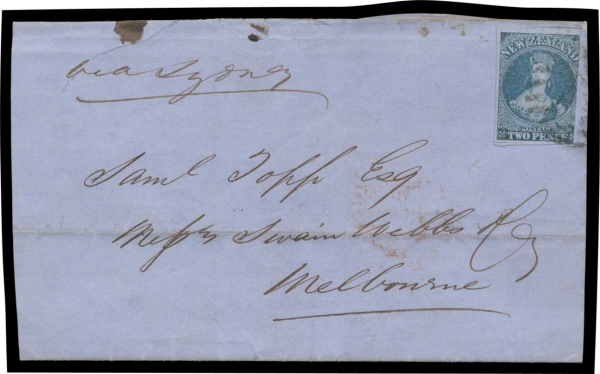 via Sydney
NEW ZEALAND
POSTAGE
TWO PENCE
Saml Topp Esq
Messrs Swain Webbs &
Melbourne